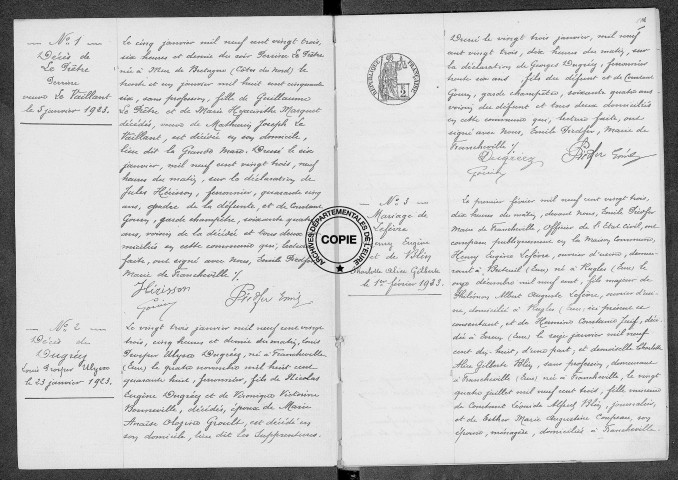 — N° 1 —
Décès de
Le Prêtre
Perrine
veuve Le Vaillant
le 5 janvier 1923.
Le cinq janvier mil neuf cent vingt trois,
six heures et demie du soir Perrine Le Prêtre
née à Mur de Bretagne (Côtes du Nord) le
trente et un janvier mil huit cent cinquante
six, sans profession, fille de Guillaume
Le Prêtre et de Marie Hyacinthe
décédés, veuve de Mathurin Joseph Le
Vaillant, est décédée en son domicile,
lieu dit la Grande Mare. Dressé le six
janvier, mil neuf cent vingt trois, neuf
heures du matin, sur la déclaration de
Jules Hérisson, ans, cinquante cinq
ans, de la défunte, et de Constant
Gouin, garde champêtre, soixante quatre
ans, voisin de la décédée et tous deux domi-
ciliés en cette commune qui, lecture
faite, ont signé avec Nous, Emile
Maire de Francheville ./.
Hérisson
— N° 2 —
Décès de
Dugrécy
Louis Prosper Ulysse
le 23 janvier 1923.
Le vingt trois janvier mil neuf cent vingt
trois, cinq heures et demie du matin, Louis
Prosper Ulysse Dugrécy, né à Francheville
(Eure) le quatre novembre mil huit cent
quarante huit, fils de Nicolas
Eugène Dugrécy et de Véronique Victoire
Bonneville, décédés, époux de Marie
Anaïse Olympe est décédé en
son domicile, lieu dit les
RÉPUBLIQUE FRANÇAISE
ARCHIVES DÉPARTEMENTALES DE L'EURE
COPIE
Dressé le vingt trois janvier, mil neuf
cent vingt trois, dix heures du matin, sur
la déclaration de Georges Dugrécy,
trente six ans, fils du défunt et de Constant
Gouin, garde champêtre, soixante quatre ans
voisin du défunt et tous deux domiciliés
en cette commune qui, lecture faite, ont
signé avec Nous, Emile Maire de
Francheville ./.
Dugrécy
— N° 3 —
Mariage de
Lefèvre
Henry Eugène
et de
Charlotte Alice Gilberte
le 1er février 1923.
Le premier février mil neuf cent vingt trois,
dix heures du matin, devant Nous, Emile
Maire de Francheville, Officier de l'Etat Civil, ont
comparu publiquement en la Maison Commune,
Henry Eugène Lefèvre, ouvrier d'usine, demeu-
rant à Breteuil (Eure) né à Rugles (Eure) le
onze décembre mil neuf cent, fils majeur de
Albert Auguste Lefèvre, ouvrier d'usi-
ne, domicilié à Rugles (Eure) ici présent et
consentant, et de Constance Juif, décé-
dée à Evreux (Eure) le seize janvier mil neuf
cent dix-huit, d'une part, et demoiselle Charlotte
Alice Gilberte sans profession, demeurant
à Francheville (Eure) née à Francheville, le vingt
quatre juillet mil neuf cent trois, fille mineure
de Constant Léonide Alfred journalier,
et de Esther Marie Augustine Coupeau, son
épouse, ménagère, domiciliés à Francheville.